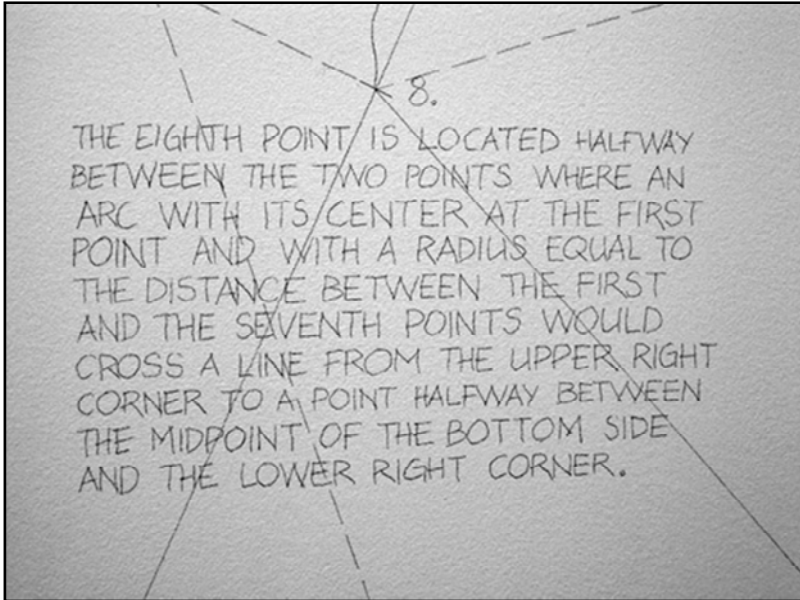 8.
THE EIGHTH POINT IS LOCATED HALFWAY
BETWEEN THE TWO POINTS WHERE AN
ARC WITH ITS CENTER AT THE FIRST
POINT AND WITH A RADIUS EQUAL TO
THE DISTANCE BETWEEN THE FIRST
AND THE SEVENTH POINTS WOULD
CROSS A LINE FROM THE UPPER RIGHT
CORNER TO A POINT HALFWAY BETWEEN
THE MIDPOINT OF THE BOTTOM SIDE
AND THE LOWER RIGHT CORNER.